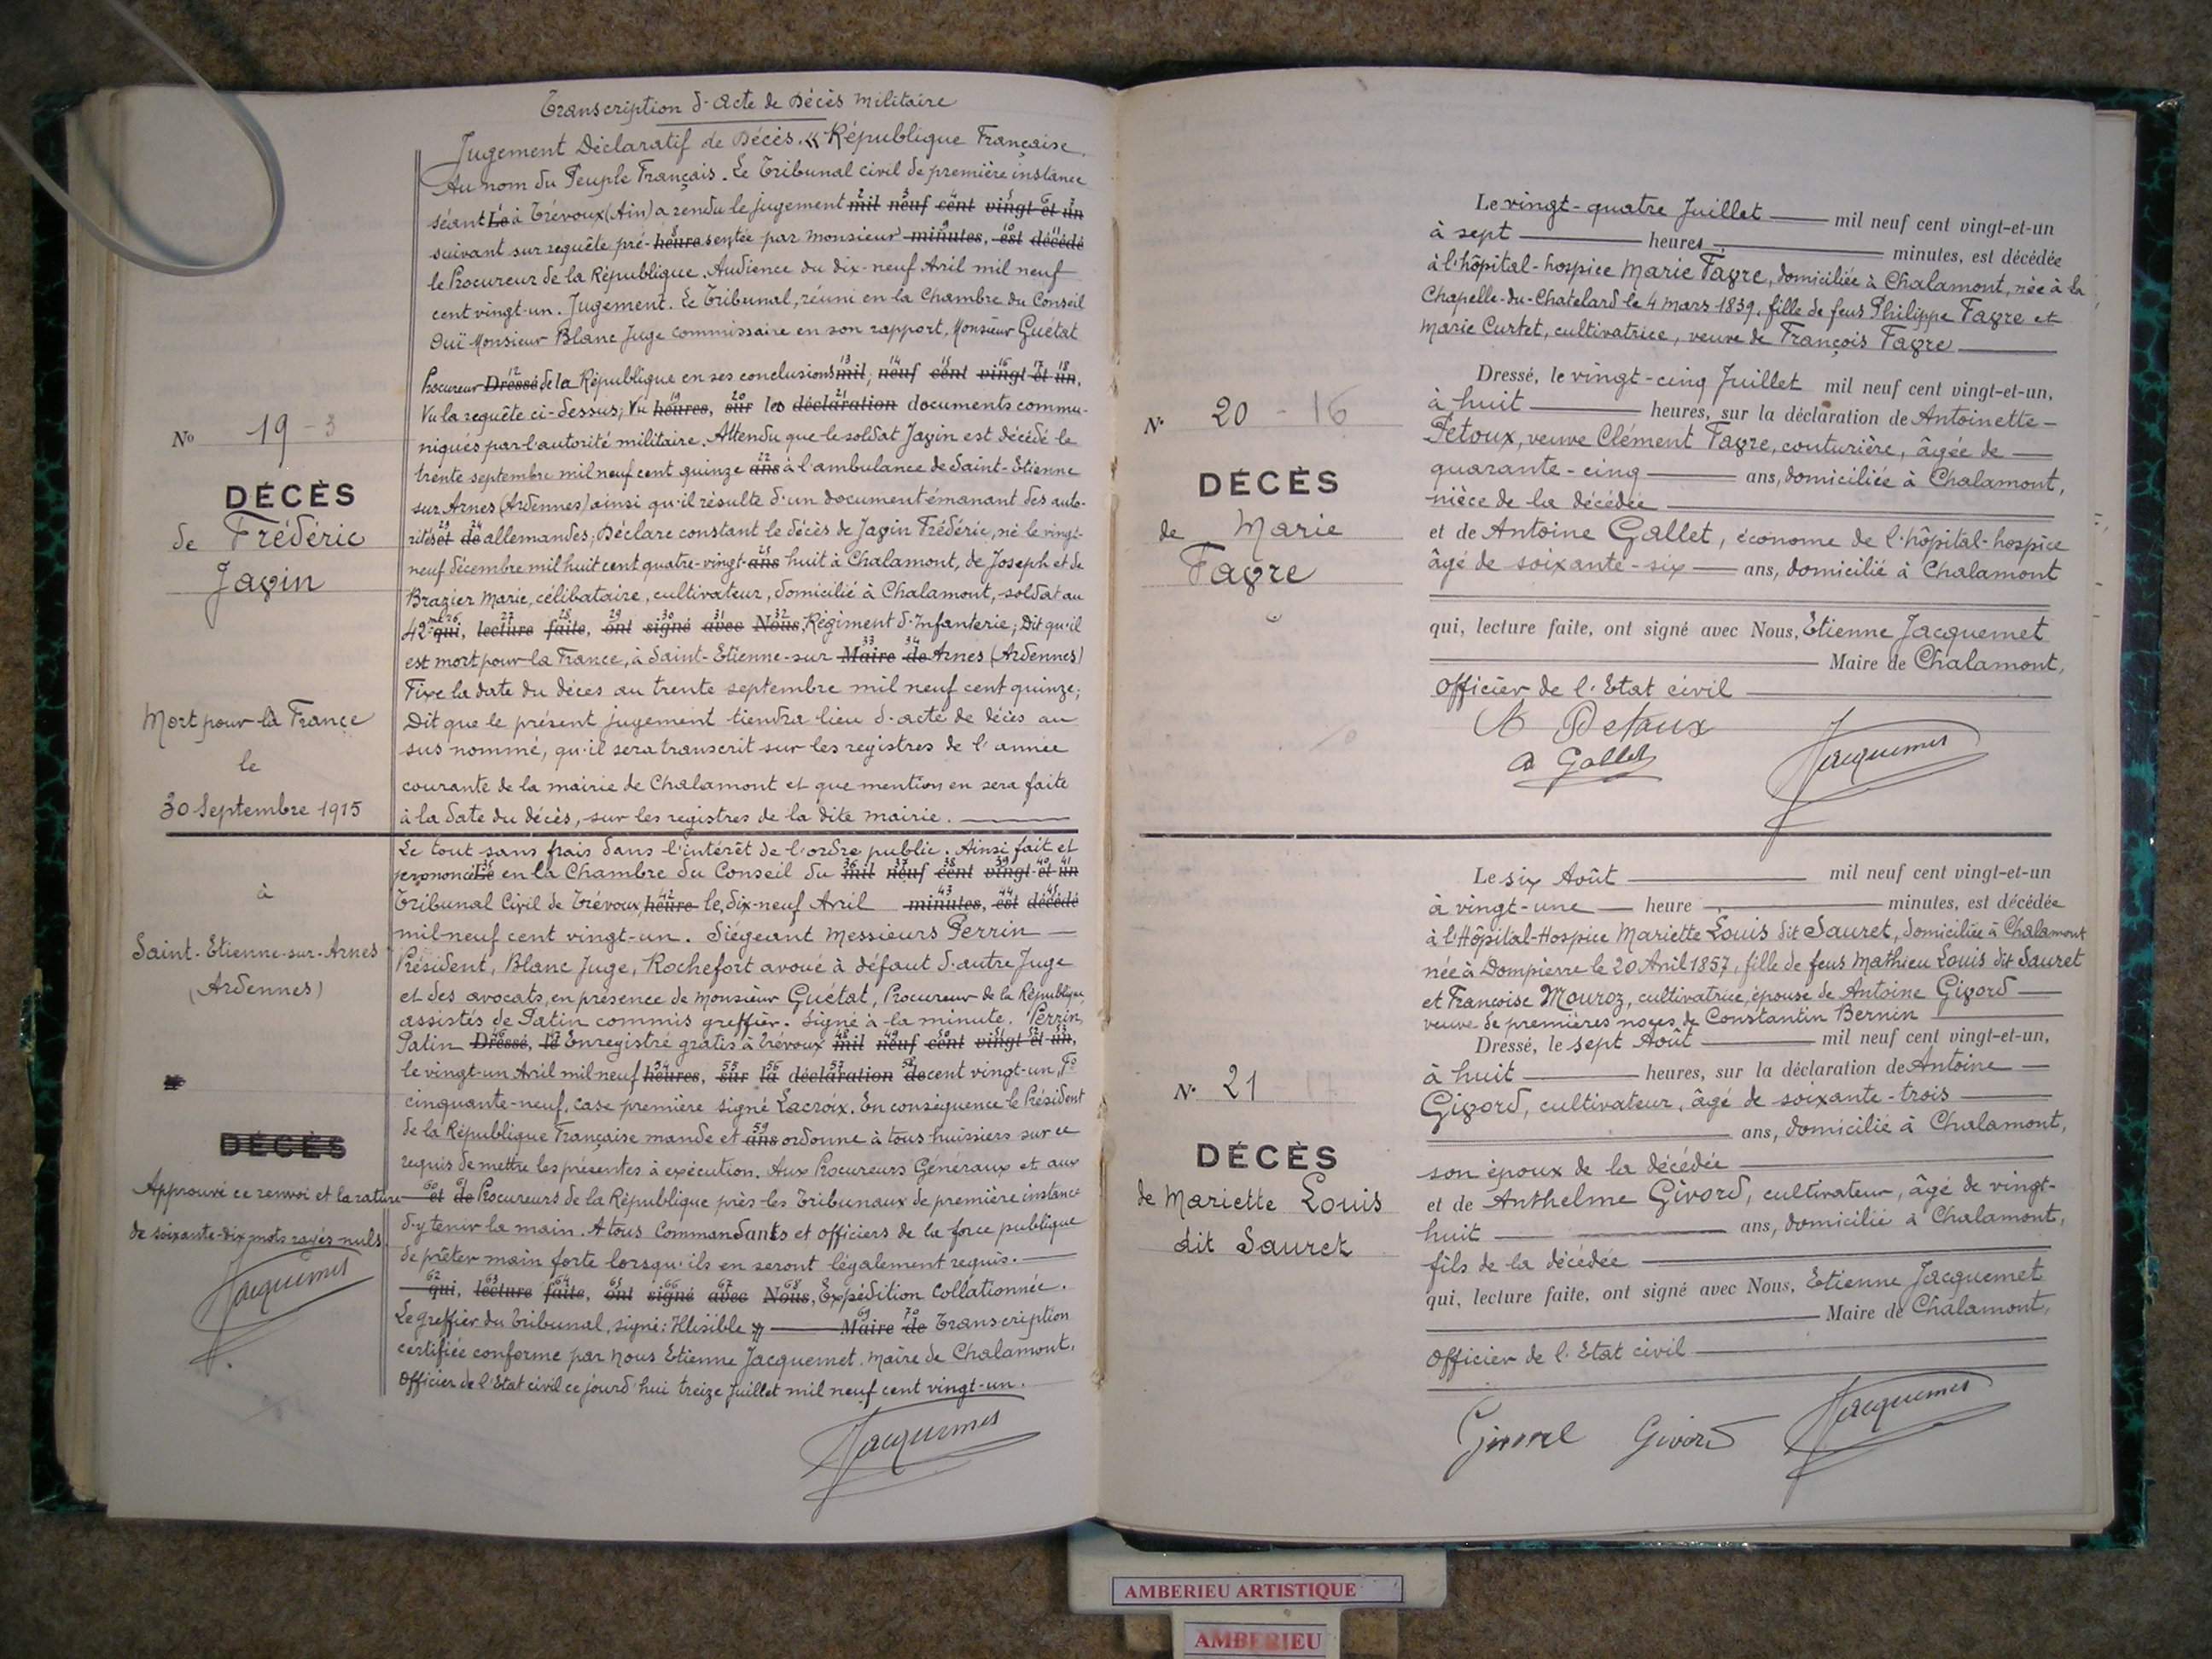 Transcription d'acte de Décès militaire
Jugement Déclaratif de Décès. « République Française.
Au nom du Peuple Français. Le Tribunal civil de première instance
séant Le à Trévoux (Ain) a rendu le jugement mil neuf cent vingt et un
suivant sur requête pré- heure sentée par Monsieur minutes, est décédé
le Procureur de la République. Audience du dix-neuf Avril mil neuf
cent vingt-un. Jugement. Le Tribunal, réuni en la Chambre du Conseil
Ouï Monsieur Blanc Juge commissaire en son rapport, Monsieur Guétat
Procureur Dressé de la République en ses conclusions mil, neuf cent vingt et un,
Vu la requête ci-dessus; Vu heures, sur les déclaration documents commu-
niqués par l'autorité militaire. Attendu que le soldat Javin est décédé le
trente septembre mil neuf cent quinze ans à l'ambulance de Saint-Etienne
sur Arnes (Ardennes) ainsi qu'il résulte d'un document émanant des auto-
rités et de allemandes; Déclare constant le décès de Javin Frédéric, né le vingt-
neuf décembre mil huit cent quatre-vingt-ans huit à Chalamont, de Joseph et de
Brazier Marie, célibataire, cultivateur, domicilié à Chalamont, soldat au
42me qui, lecture faite, ont signé avec Nous, Régiment d'Infanterie; Dit qu'il
est mort pour la France, à Saint-Etienne-sur Maire de Arnes (Ardennes)
Fixe la date du décès au trente septembre mil neuf cent quinze;
Dit que le présent jugement tiendra lieu d'acte de décès au
sus nommé, qu'il sera transcrit sur les registres de l'année
courante de la mairie de Chalamont et que mention en sera faite
à la date du décès, sur les registres de la dite mairie.
Le tout sans frais dans l'intérêt de l'ordre public. Ainsi fait et
prononcé Le en la Chambre du Conseil du mil neuf cent vingt et un
Tribunal Civil de Trévoux, heure le, dix-neuf Avril minutes, est décédé
mil neuf cent vingt-un. Siégeant Messieurs Perrin
Président, Blanc Juge, Rochefort avoué à défaut d'autre Juge
et des avocats, en présence de Monsieur Guétat, Procureur de la République,
assistés de Patin commis greffier. Signé à la minute. Perrin,
Patin Dressé, le Enregistré gratis à Trévoux mil neuf cent vingt et un,
le vingt-un Avril mil neuf heures, sur la déclaration de cent vingt-un, Fo
cinquante-neuf, case première signé Lacroix. En conséquence le Président
de la République Française mande et ans ordonne à tous huissiers sur ce
requis de mettre les présentes à exécution. Aux Procureurs Généraux et aux
et de Procureurs de la République près les Tribunaux de première instance
d'y tenir la main. A tous Commandants et officiers de la force publique
de prêter main forte lorsqu'ils en seront légalement requis.
qui, lecture faite, ont signé avec Nous, Expédition Collationnée.
Le greffier du Tribunal, signé: Illisible » Maire de Transcription
certifiée conforme par nous Etienne Jacquemet, Maire de Chalamont,
Officier de l'Etat civil ce jourd'hui treize Juillet mil neuf cent vingt-un.
Jacquemet
No 19 - 3
DÉCÈS
de Frédéric
Javin
Mort pour la France
le
30 Septembre 1915
à
Saint-Etienne-sur-Arnes
(Ardennes)
DÉCÈS
Approuvé ce renvoi et la rature
de soixante-dix mots rayés nuls.
Jacquemet
Le vingt-quatre Juillet mil neuf cent vingt-et-un
à sept heures minutes, est décédée
à l'hôpital-hospice Marie Favre, domiciliée à Chalamont, née à la
Chapelle-du-Chatelard le 4 mars 1839, fille de feus Philippe Favre et
Marie Curtet, cultivatrice, veuve de François Favre
Dressé, le vingt-cinq Juillet mil neuf cent vingt-et-un,
à huit heures, sur la déclaration de Antoinette
Petoux, veuve Clément Favre, couturière, âgée de
quarante-cinq ans, domiciliée à Chalamont,
nièce de la décédée
et de Antoine Gallet, économe de l'hôpital-hospice
âgé de soixante-six ans, domicilié à Chalamont
qui, lecture faite, ont signé avec Nous, Etienne Jacquemet
Maire de Chalamont,
Officier de l'Etat civil
A Petoux
A Gallet
Jacquemet
No 20 - 16
DÉCÈS
de Marie
Favre
Le six Août mil neuf cent vingt-et-un
à vingt-une heure minutes, est décédée
à l'Hôpital-Hospice Mariette Louis dit Sauret, domiciliée à Chalamont
née à Dompierre le 20 Avril 1857, fille de feus Mathieu Louis dit Sauret
et Françoise Mouroz, cultivatrice, épouse de Antoine Givord
veuve de premières noces de Constantin Bernin
Dressé, le sept Août mil neuf cent vingt-et-un,
à huit heures, sur la déclaration de Antoine
Givord, cultivateur, âgé de soixante-trois
ans, domicilié à Chalamont,
son époux de la décédée
et de Anthelme Givord, cultivateur, âgé de vingt-
huit ans, domicilié à Chalamont,
fils de la décédée
qui, lecture faite, ont signé avec Nous, Etienne Jacquemet
Maire de Chalamont,
Officier de l'Etat civil
Givord Givord Jacquemet
No 21 17
DÉCÈS
de Mariette Louis
dit Sauret
AMBERIEU ARTISTIQUE
AMBERIEU